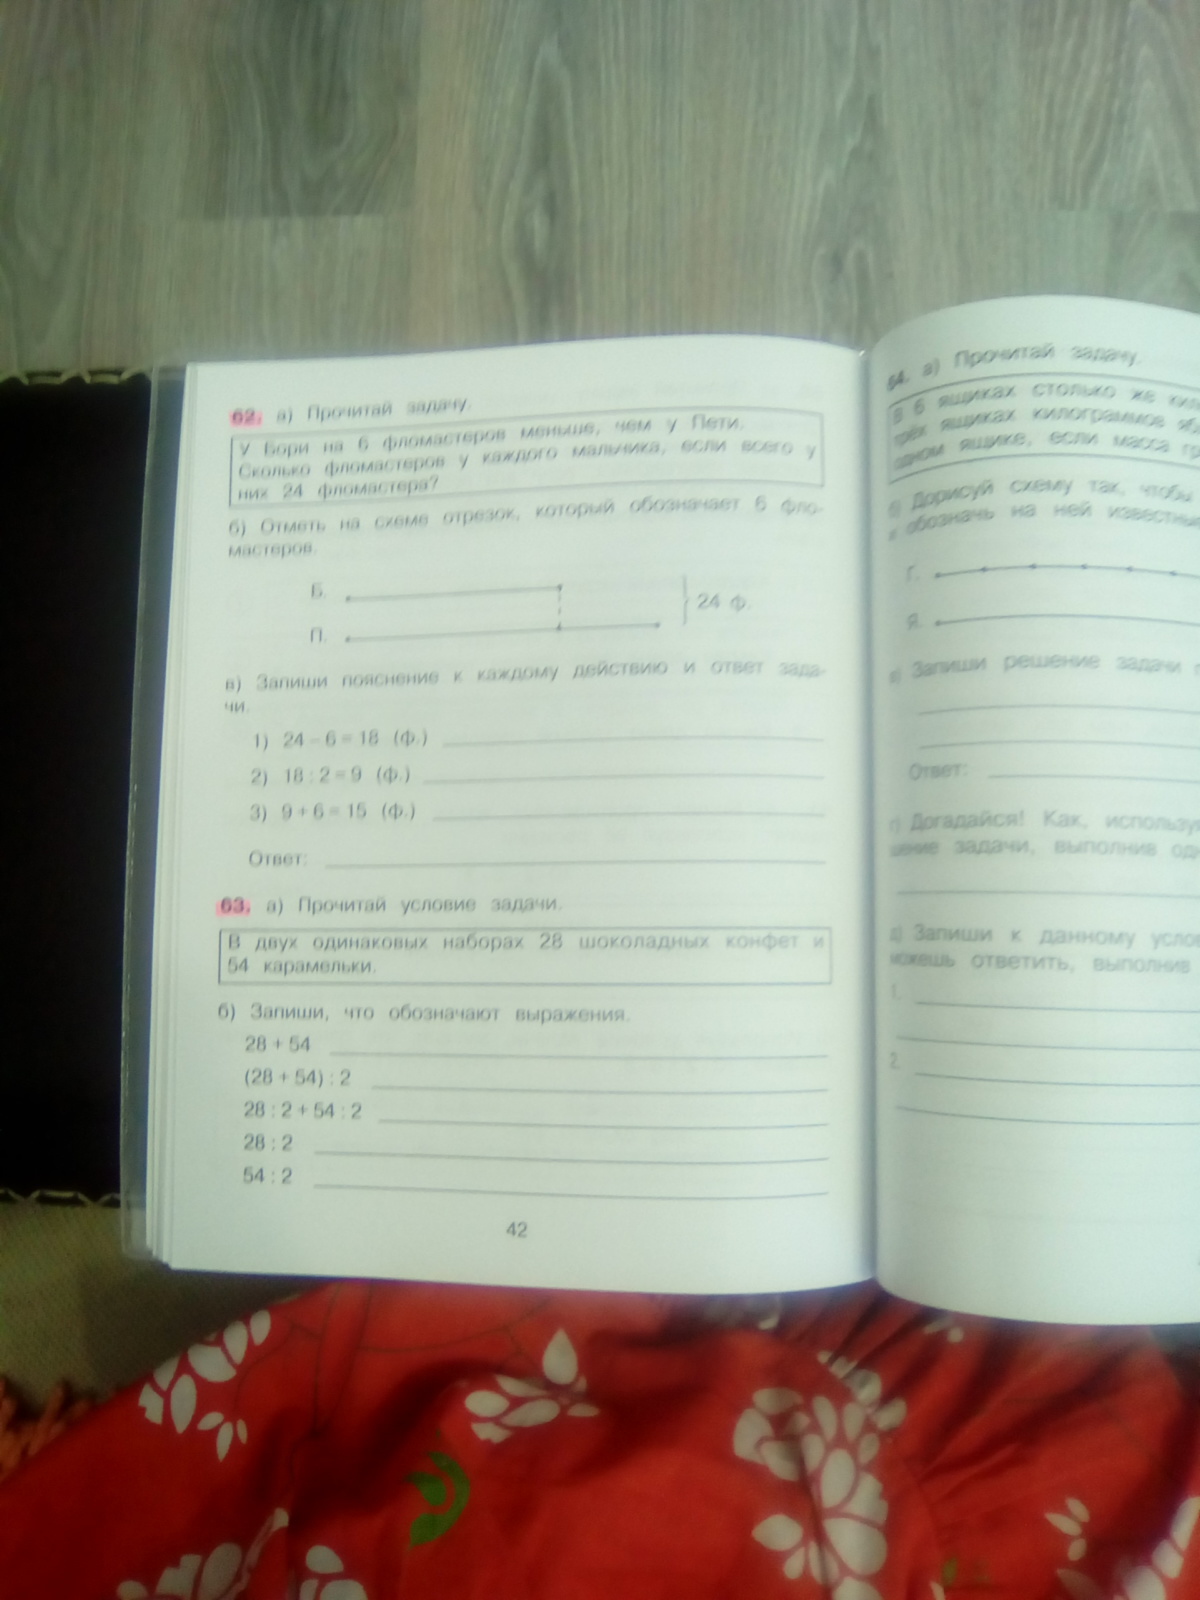 62. а) Прочитай задачу.
У Бори на 6 фломастеров меньше, чем у Пети.
Сколько фломастеров у каждого мальчика, если всего у
них 24 фломастера?
б) Отметь на схеме отрезок, который обозначает 6 фло-
мастеров.
Б.
24 ф.
П.
в) Запиши пояснение к каждому действию и ответ зада-
чи.
1) 24 – 6 = 18 (ф.)
2) 18 : 2 = 9 (ф.)
3) 9 + 6 = 15 (ф.)
Ответ:
63. а) Прочитай условие задачи.
В двух одинаковых наборах 28 шоколадных конфет и
54 карамельки.
б) Запиши, что обозначают выражения.
28 + 54
(28 + 54) : 2
28 : 2 + 54 : 2
28 : 2
54 : 2
42
64. а) Прочитай задачу.
В 6 ящиках столько же
ящиках килограммов
одном ящике, если масса
б) Дорисуй схему так, чтобы
и обозначь на ней
Г.
Я.
в) Запиши решение задачи
Ответ:
г) Догадайся! Как,
задачи, выполнив
д) Запиши к данному
можешь ответить, выполнив
1.
2.